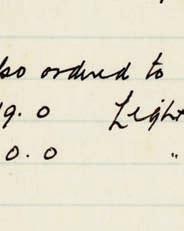 lso ordered to
19. 0 Light
0. 0 "